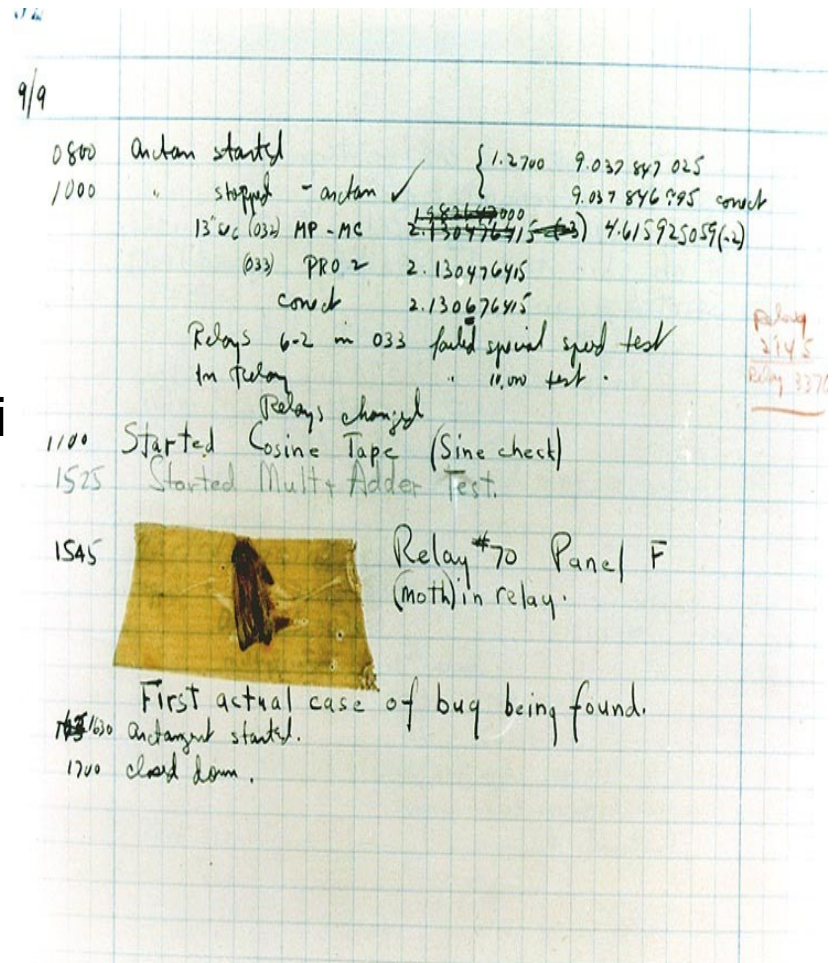 9/9
0800 Antan started { 1.2700 9.037 847 025
1000 " stopped - antan ✓ 9.037 846 995 correct
13"uc (032) MP - MC 2.130476415 (-3) 4.615925059(-2)
(033) PRO 2 2.130476415
correct 2.130676415
Relays 6-2 in 033 failed special speed test
In Relay " 10,000 test.
Relays changed
Relay
2145
Relay 3370
1100 Started Cosine Tape (Sine check)
1525 Started Mult + Adder Test.
1545 Relay #70 Panel F
(moth) in relay.
First actual case of bug being found.
1630 Antangent started.
1700 closed down.
i